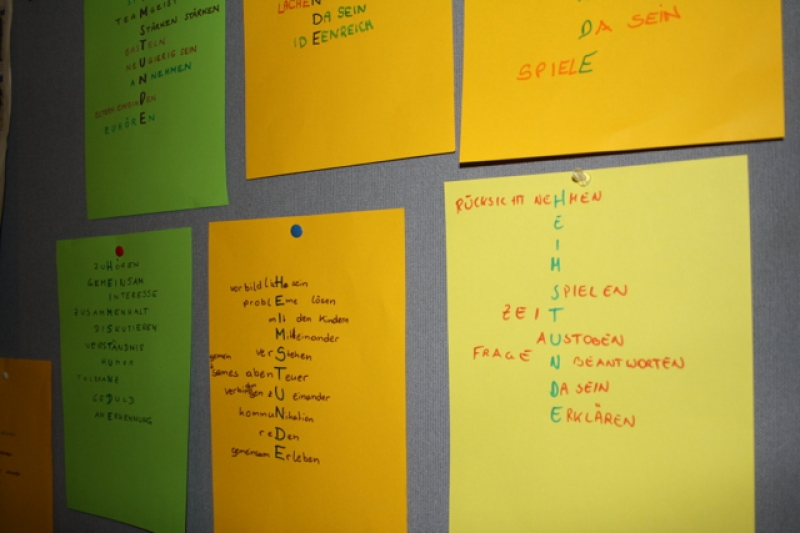 TEAMGEIST
STÄRKEN STÄRKEN
U
BASTELN
NEUGIERIG SEIN
ANNEHMEN
D
ZUHÖREN
LACHEN
DA SEIN
IDEENREICH
DA SEIN
SPIELE
ZUHÖREN
GEMEINSAM
INTERESSE
ZUSAMMENHALT
DISKUTIEREN
VERSTÄNDNIS
HUMOR
TOLERANZ
GEDULD
ANERKENNUNG
vorbildlicH sein
problEme lösen
mIt den Kindern
Miteinander
verStehen
gemein
sames abenTeuer
zUeinander
kommuNikation
reDen
gemeinsam Erleben
RÜCKSICHT NEHMEN
E
I
M
SPIELEN
ZEIT
AUSTOBEN
FRAGEN BEANTWORTEN
DA SEIN
ERKLÄREN